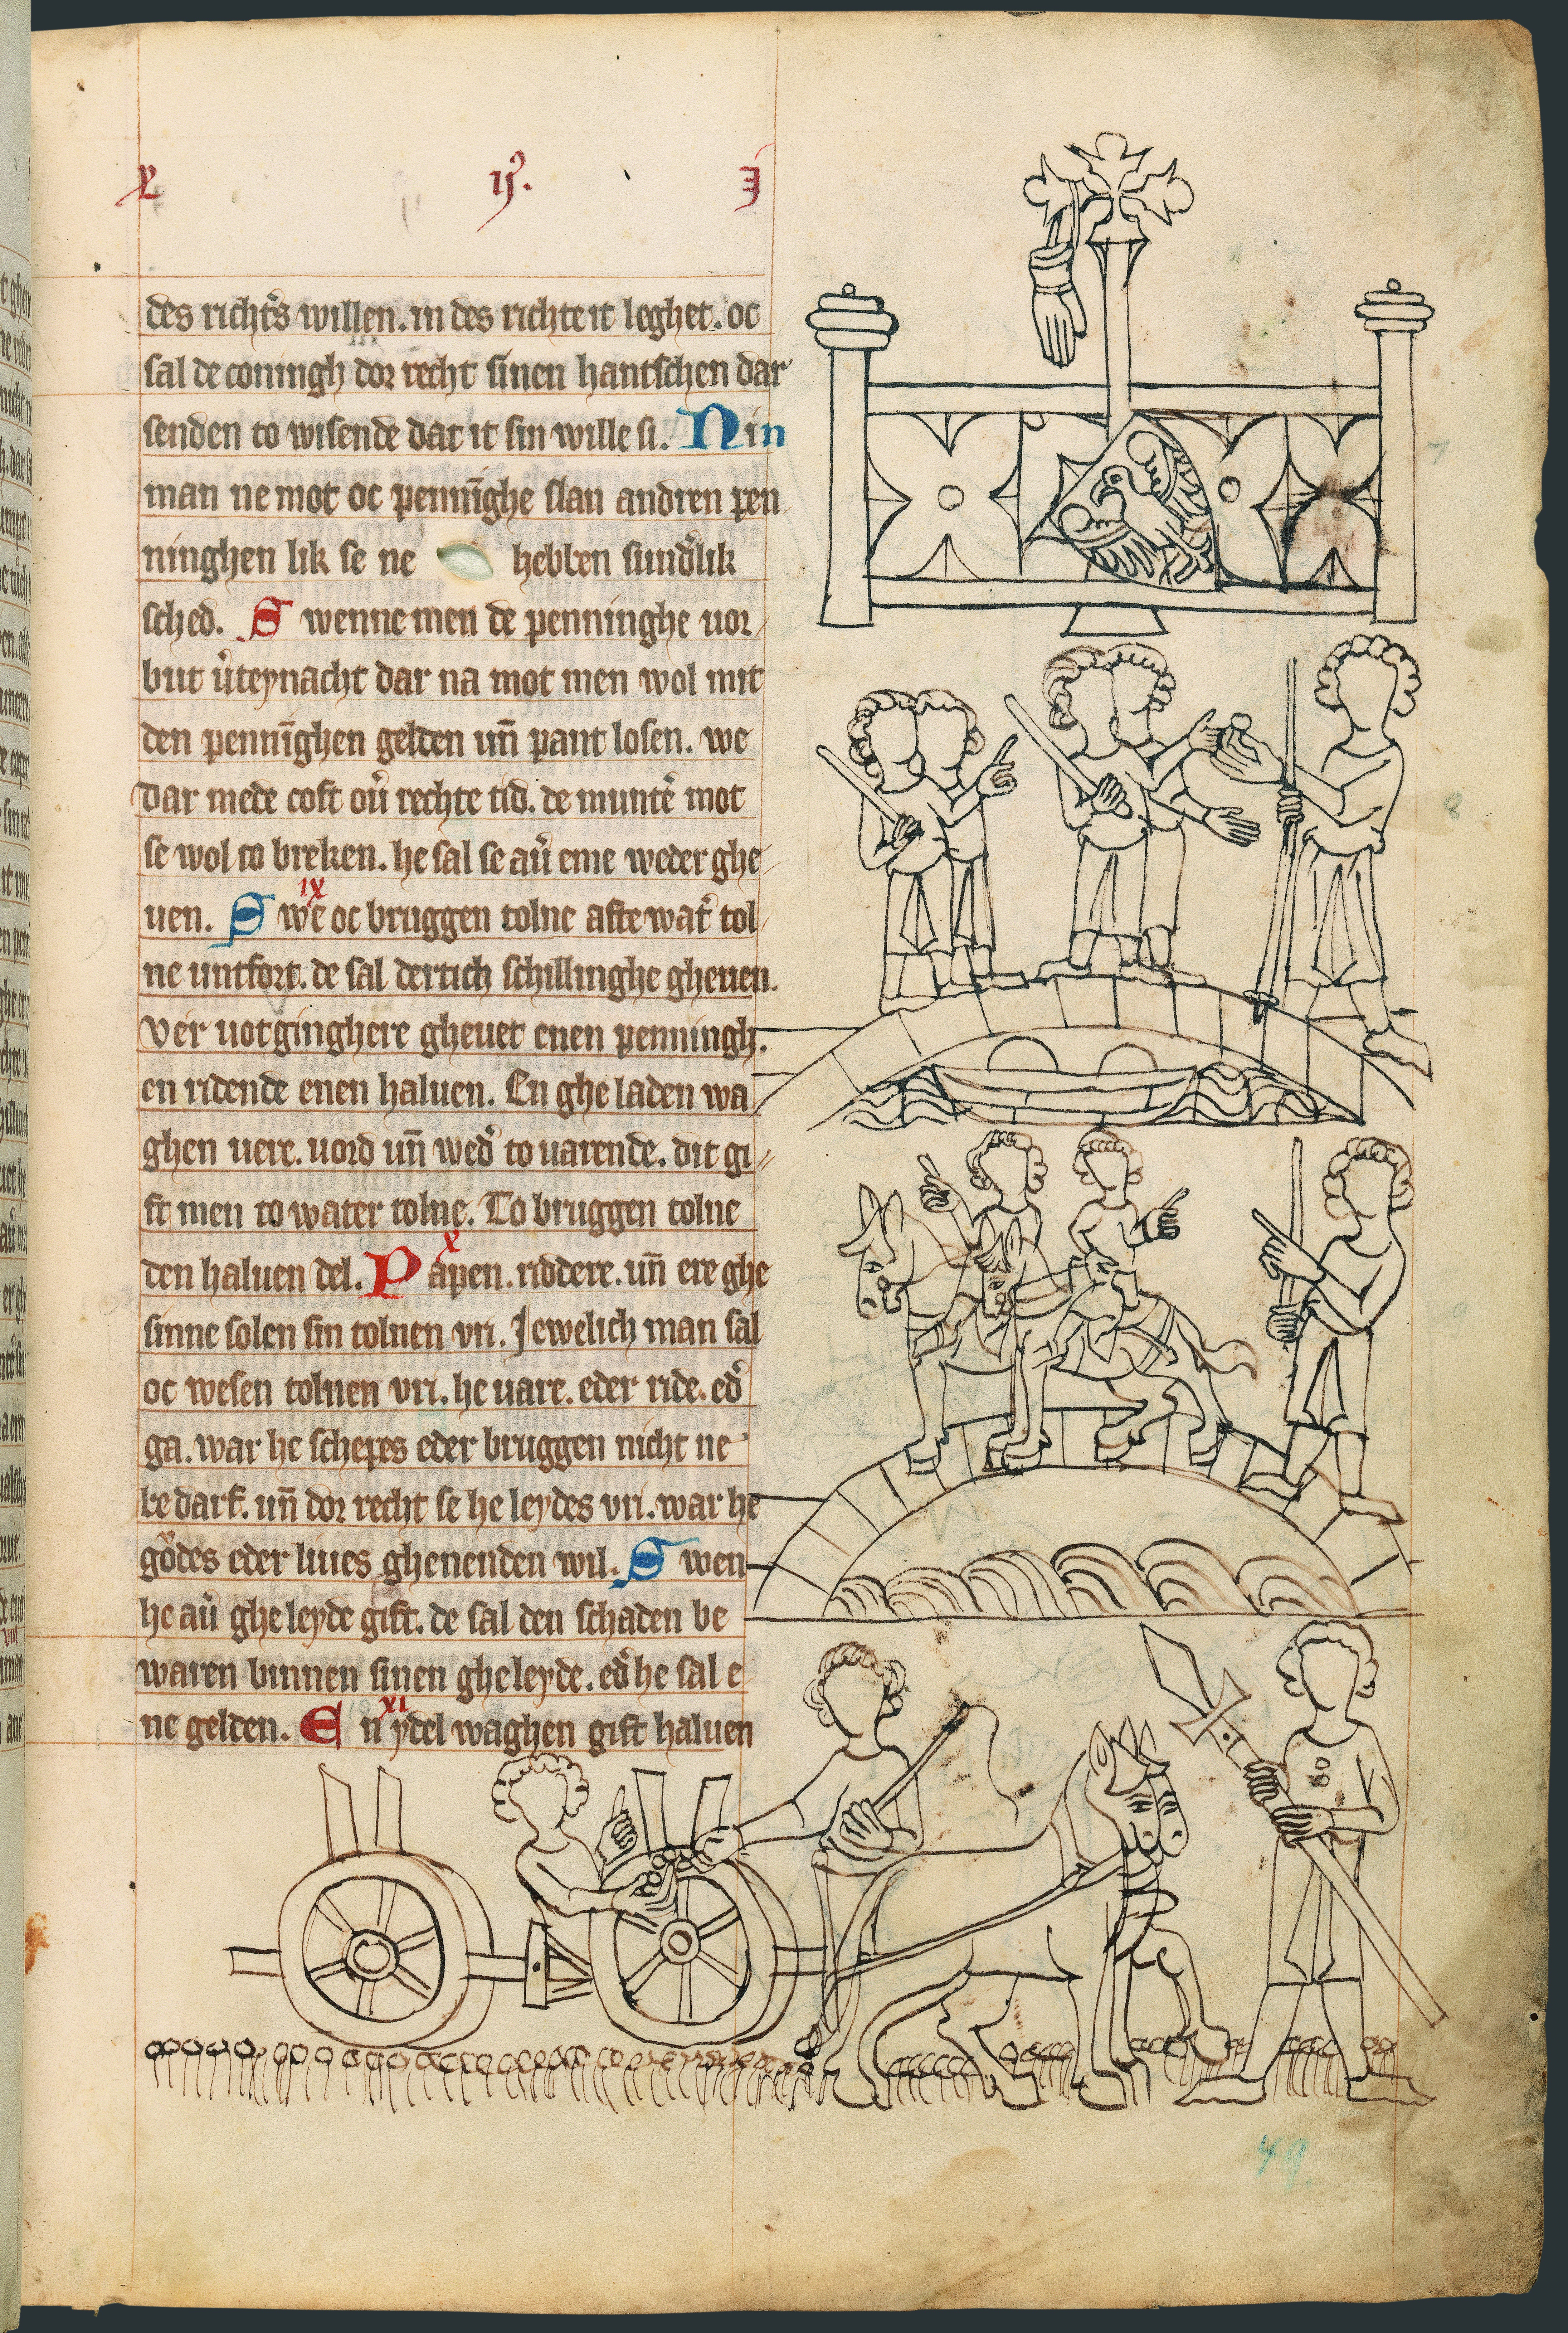 X ij᷒. J
des richt᷒s willen. in des richte it leghet. oc
sal de coningh dor recht sinen hantschen dar
senden to wisende dat it sin wille si. Nin
man ne mot oc penni̅ghe slan andren pen
ninghen lik se ne hebben sund᷒lik
sched. S wenne men de penninghe uor
but v᷒teynacht dar na mot men wol mit
den penni̅ghen gelden un̅ pant losen. we
dar mede coft ou᷒ rechte tid. de munte᷒ mot
se wol to breken. he sal se au᷒ eme weder ghe
uen. S we oc bruggen tolne afte wat᷒ tol
IX
ne untfort. de sal dertich schillinghe gheuen.
Ver uotginghere gheuet enen penningh.
en ridende enen haluen. En ghe laden wa
ghen uere. uord un̅ wed᷒ to uarende. dit gi
ft men to water tolne. To bruggen tolne
den haluen del. P apen. riddere. un̅ ere ghe
X
sinne solen sin tolnen vri. Jewelich man sal
oc wesen tolnen vri. he uare. eder ride. ed᷒
ga. war he schepes eder bruggen nicht ne
be darf. un̅ dor recht se he leydes vri. war he
godes eder liues ghenenden wil. S wen
he au᷒ ghe leyde gift. de sal den schaden be
waren binnen sinen ghe leyde. ed᷒ he sal e
ne gelden. E n ydel waghen gift haluen
XI
49